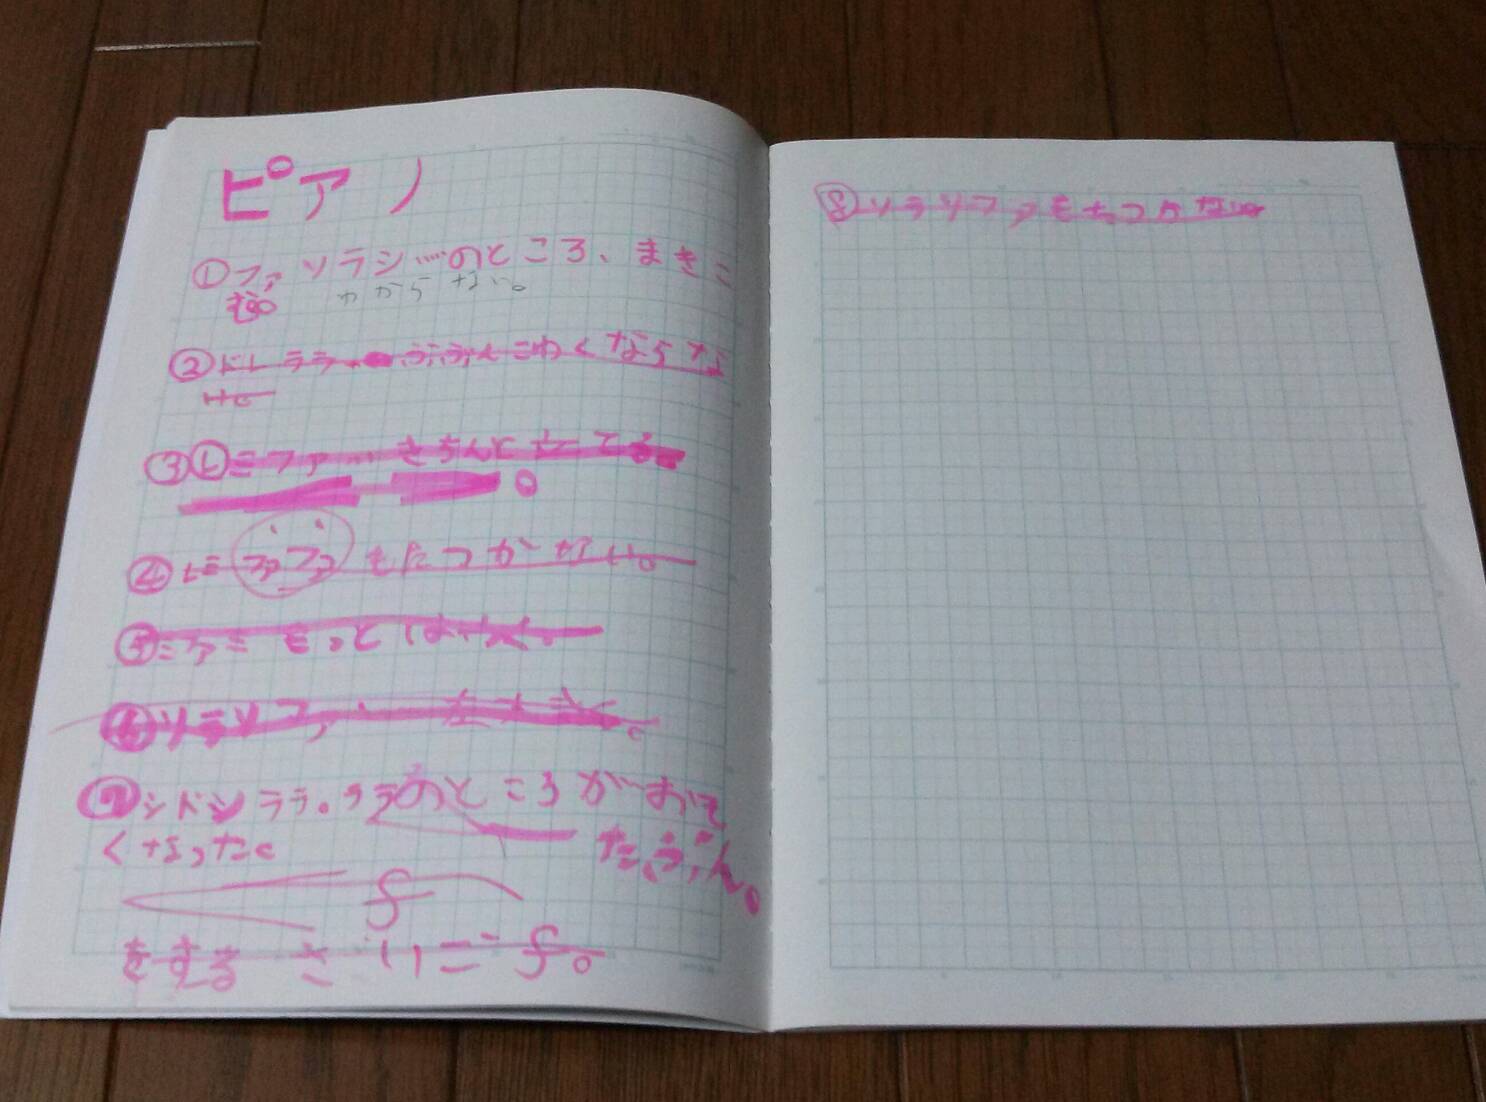 ピアノ
①ファソラシ…のところ、まきこ
む。 わからない。
②ドレララ ぶぶんこわくならな
い。
③①ミファ… きちんと立てる
。
④レミファファもたつかない。
⑤ミファミもっとはやく。
⑥ソラソファ
⑦シドシララ。ララのところがおそ
くなった。 たぶん。
f
をする さいごf。
⑧ソラソファもたつかない。